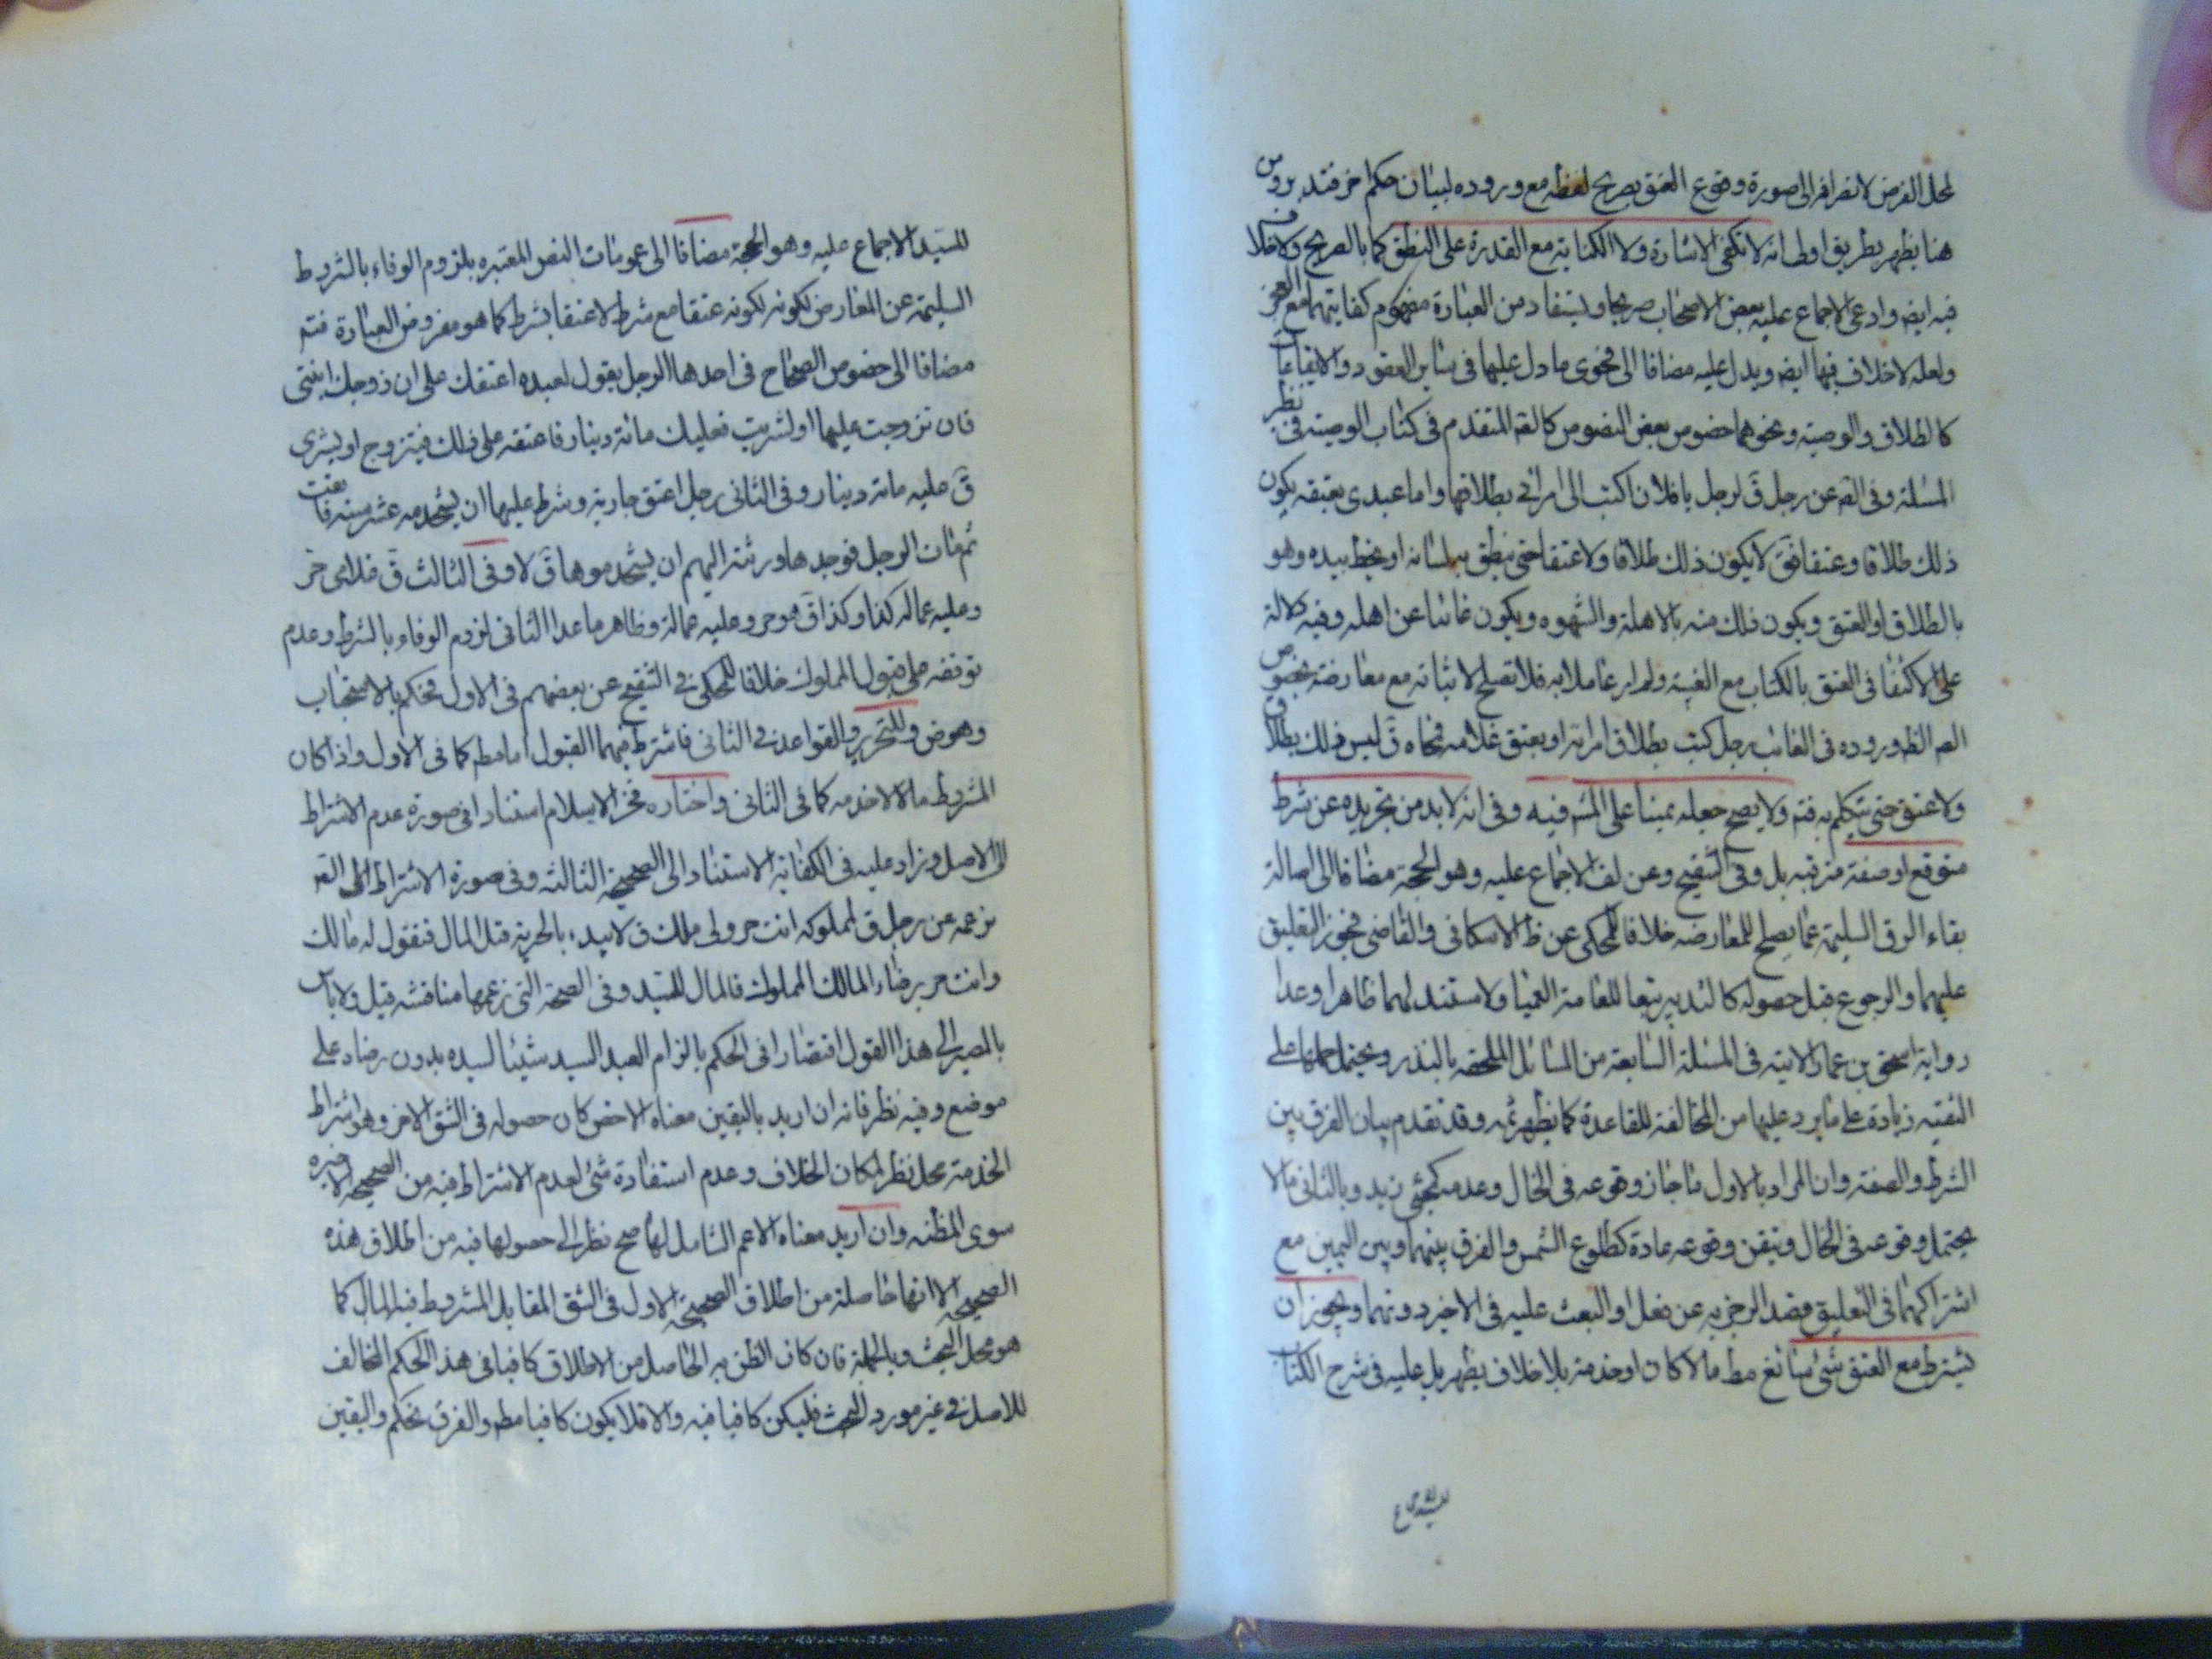 لمحل الفرض لانصرافه الى صورة وقوع العتق بصريح لفظه مع وروده لبيان حكم اخر فتدبر ومن
هنا يظهر بطريق اولى انه لا تكفى الاشارة ولا الكتابة مع القدرة على النطق كما بالصريح ولا خلاف
فيه ايضا وادعى الاجماع عليه بعض الاصحاب صريحا ويستفاد من العبارة مفهوم كفايتهما مع العجز
ولعله لا خلاف فيها ايضا ويدل عليه مضافا الى فحوى ما دل عليها فى ساير العقود والايقاعات
كالطلاق والوصية ونحوهما خصوص بعض النصوص كالقه المتقدم فى كتاب الوصية فى نظير
المسئلة وفى القه عن رجل ق لرجل يا فلان اكتب الى امراتى بطلاقها واما عبدى بعتقه يكون
ذلك طلاقا وعتقا فق لا يكون ذلك طلاقا ولا عتقا حتى ينطق به لسانه او يخط بيده وهو
بالطلاق او العتق ويكون ذلك منه بالاهلة والشهوه ويكون غائبا عن اهله وفيه دلالة
على الاكتفا فى العتق بالكتاب مع الغيبة ولم ار عاملا به فلا تصلح لاثباته مع معارضته بخصوص
القه الظ وروده فى الغائب رجل كتب بطلاق امراته او بعتق غلامه ثم محاه ق ليس ذلك بطلاق
ولا عتق حتى يتكلم به فتم ولا يصح جعله يمينا على المش فيه وفى انه لا بد من تجريده عن شرط
متوقع او صفة مترقبه بل وفى التنقيح وعن لف الاجماع عليه وهو الحجة مضافا الى اصالة
بقاء الرق السليمة عما يصلح للمعارضه خلافا للمحكى عن ظ الاسكافى والقاضى فجوز التعليق
عليهما والرجوع قبل حصوله كالتدبير تبعا للعامة العميا ولا مستند لهما ظاهرا وعدا
رواية اسحق بن عمار الاتية فى المسئلة السابعة من المسائل الملحقه بالنذر ويحتمل حملها على
التقيه زيادة على ما يرد عليها من المخالفة للقاعدة كما يظهر ثمه وقد تقدم بيان الفرق بين
الشرط والصفة وان المراد بالاول ما جاز وقوعه فى الحال وعدمه كمجئ زيد وبالثانى ما لا
يحتمل وقوعه فى الحال وتيقن وقوعه عادة كطلوع الشمس والفرق بينهما وبين اليمين مع
اشتراكهما فى التعليق قصد الزجر به عن فعل او البعث عليه فى الاخير دونهما ويجوز ان
يشترط مع العتق شئ سائغ مط مالا كان او خدمة بلا خلاف يظهر بل عليه فى شرح الكتاب
للسيد الاجماع
للسيد الاجماع عليه وهو الحجة مضافا الى عمومات النص المعتبره بلزوم الوفاء بالشروط
السليمة عن المعارض لكونه لكونه عتقا مع شرط لا عتقا بشرط كما هو مفروض العبارة فتم
مضافا الى خصوص الصحاح فى احدها الرجل يقول لعبده اعتقك على ان زوجك ابنتى
فان تزوجت عليها او تسريت فعليك مائة دينار فاعتقه على ذلك فيتزوج او يشرى
ق عليه مائة دينار وفى الثانى رجل اعتق جارية وشرط عليها ان تخدمه عشر سنه فابقت
ثم مات الرجل فوجدها ورثته الهم ان يستخدموها ق لا وفى الثالث ق فلان حر
وعليه عماله كذا وكذا ق هو حر وعليه عمالة وظاهر ما عدا الثانى لزوم الوفاء بالشرط وعدم
توقفه على قبول المملوك خلافا للمحكى فى التنقيح عن بعضهم فى الاول فحكم بالاستحباب
وهو ض وللتحرير والقواعد فى الثانى فاشترط فيهما القبول اما مط كما فى الاول واذا كان
المشروط مالا لا خدمه كما فى الثانى واختاره فخر الاسلام استنادا فى صورة عدم الاشتراط
الى الاصل وزاد عليه فى الكفاية الاستناد الى الصحيحة الثالثه وفى صورة الاشتراط الى القه
بزعمه عن رجل ق لمملوكه انت حر ولى مالك ق لا يبدء بالحرية قبل المال فتقول له مالك
وانت حر برضاء المالك المملوك فالمال للسيد وفى الصحة التى زعمها مناقشه قيل ولا باس
بالمصير الى هذا القول اقتصارا فى الحكم بالزام العبد السيد شيئا لسيده بدون رضاه على
موضع وفيه نظر فانه ان اريد باليقين معناه الاخص كان حصوله فى الشق الاخر وهو اشتراط
الخدمة محل نظر لمكان الخلاف وعدم استفادة شئ لعدم الاشتراط فيه من الصحيحه الاخيره
سوى المظنه وان اريد معناه الاعم الشامل لها صح نظرا الى حصولها فيه من اطلاق هذه
الصحيحه الا انها حاصلة من اطلاق الصحيحة الاول فى الشق المقابل المشروط فيه المال كما
هو محل البحث وبالجملة فان كان الظن به الحاصل من الاطلاق كافيا فى هذ الحكم المخالف
للاصل فى غير مورد البحث فليكن كافيا فيه والا فلا يكون كافيا مط والفرق تحكم واليقين